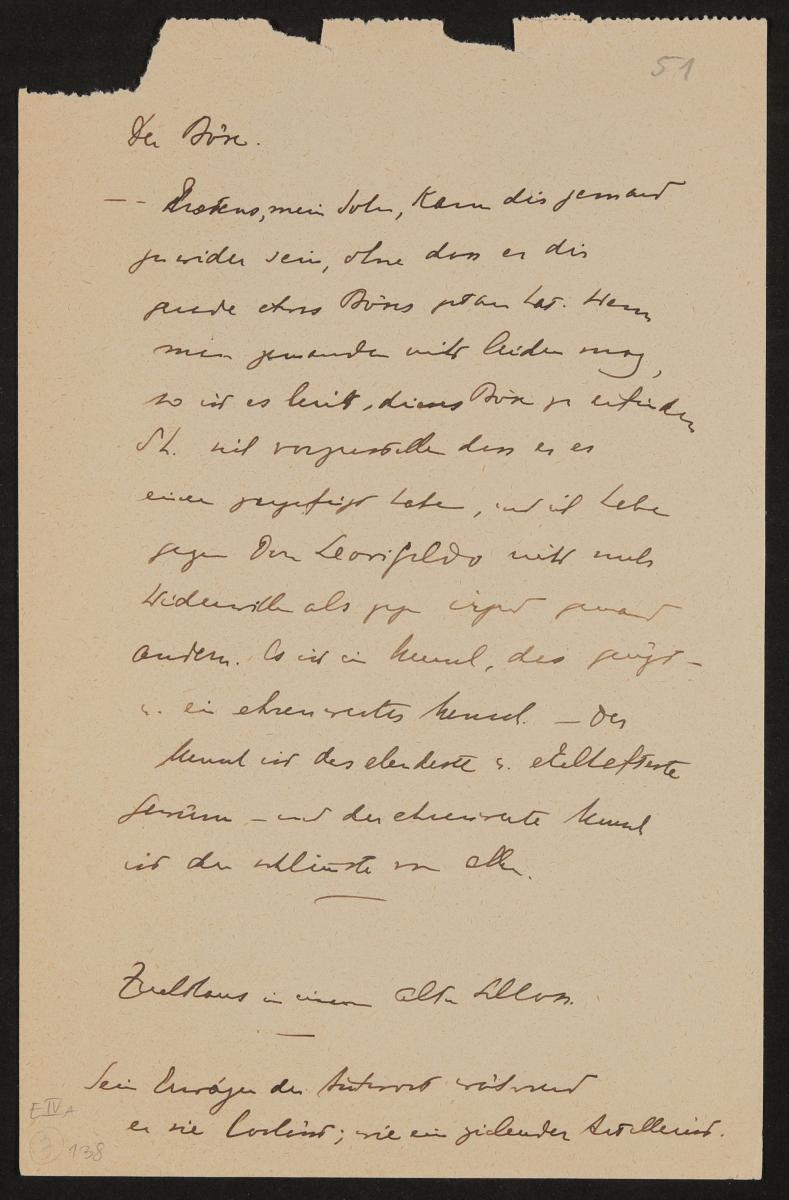 51
Der Böse.
— - Erstens, mein Sohn, kann dir jemand
zuwider sein, ohne dass er dir
gerade etwas Böses getan hat. Wenn
man jemanden nicht leiden mag,
so ist es leicht, dieses Böse zu erfinden
d.h. sich vorzustellen dass er es
einem zugefügt habe, und ich habe
gegen Don Leovigildo nicht mehr
Widerwillen als gegen irgend jemand
andern. Es ist ein Mensch, das genügt –
u. ein ehrenwerter Mensch. — Der
Mensch ist das elendeste u. ekelhafteste
Gewürm – und der ehrenwerte Mensch
ist der schlimmste von allen.
Zuchthaus in einem alten Schloss.
Sein Erwägen der Antwort während
er sie loslässt; wie ein zielender Artillerist.
E IV A
3 138